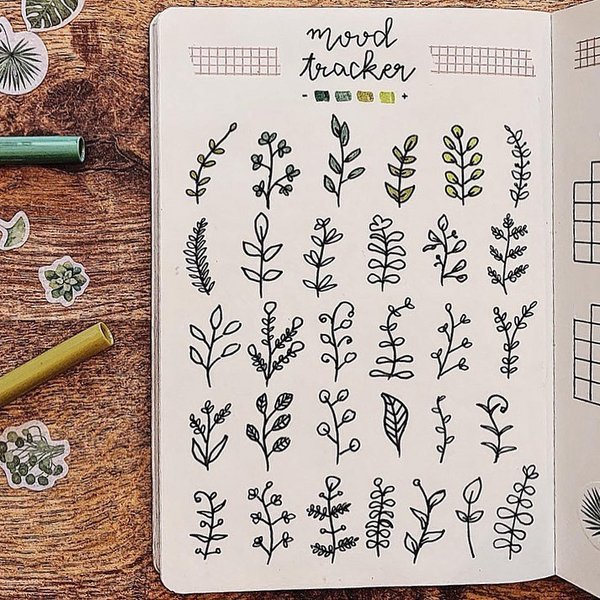 mood
tracker
- +